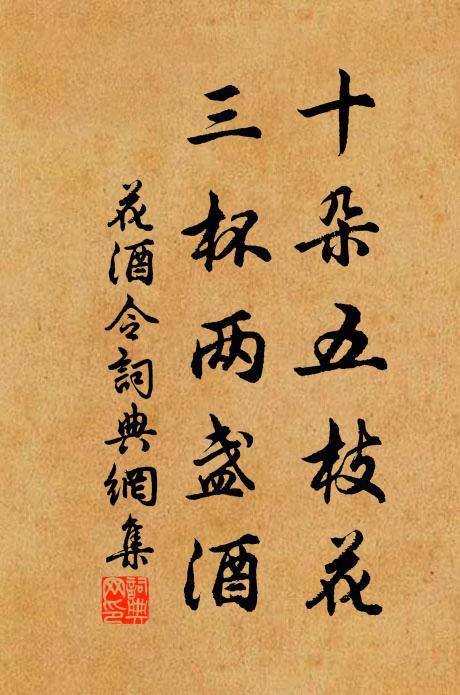 十朵五枝花
三杯两盏酒
花酒令詞典網集
詞典網印